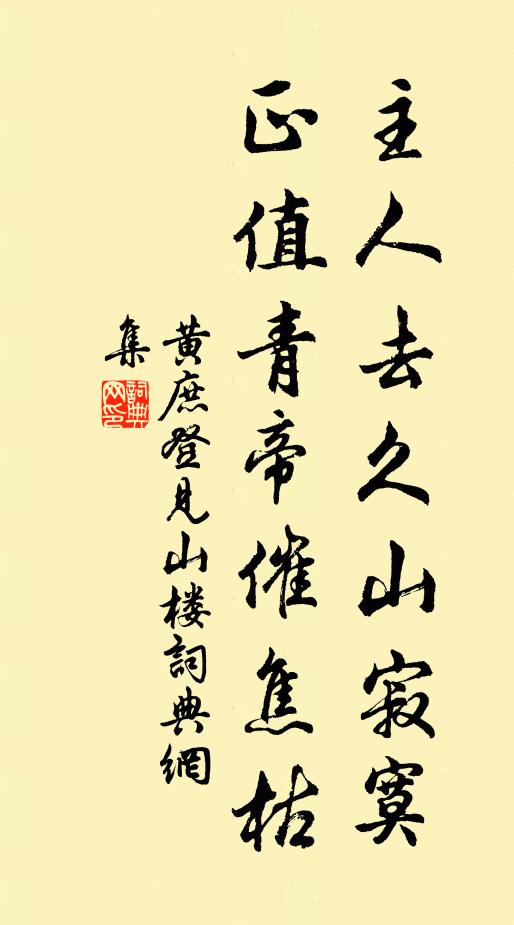 主人去久山寂寞
正值青帝催焦枯
黄庶登見山楼詞典網
集
詞典網印